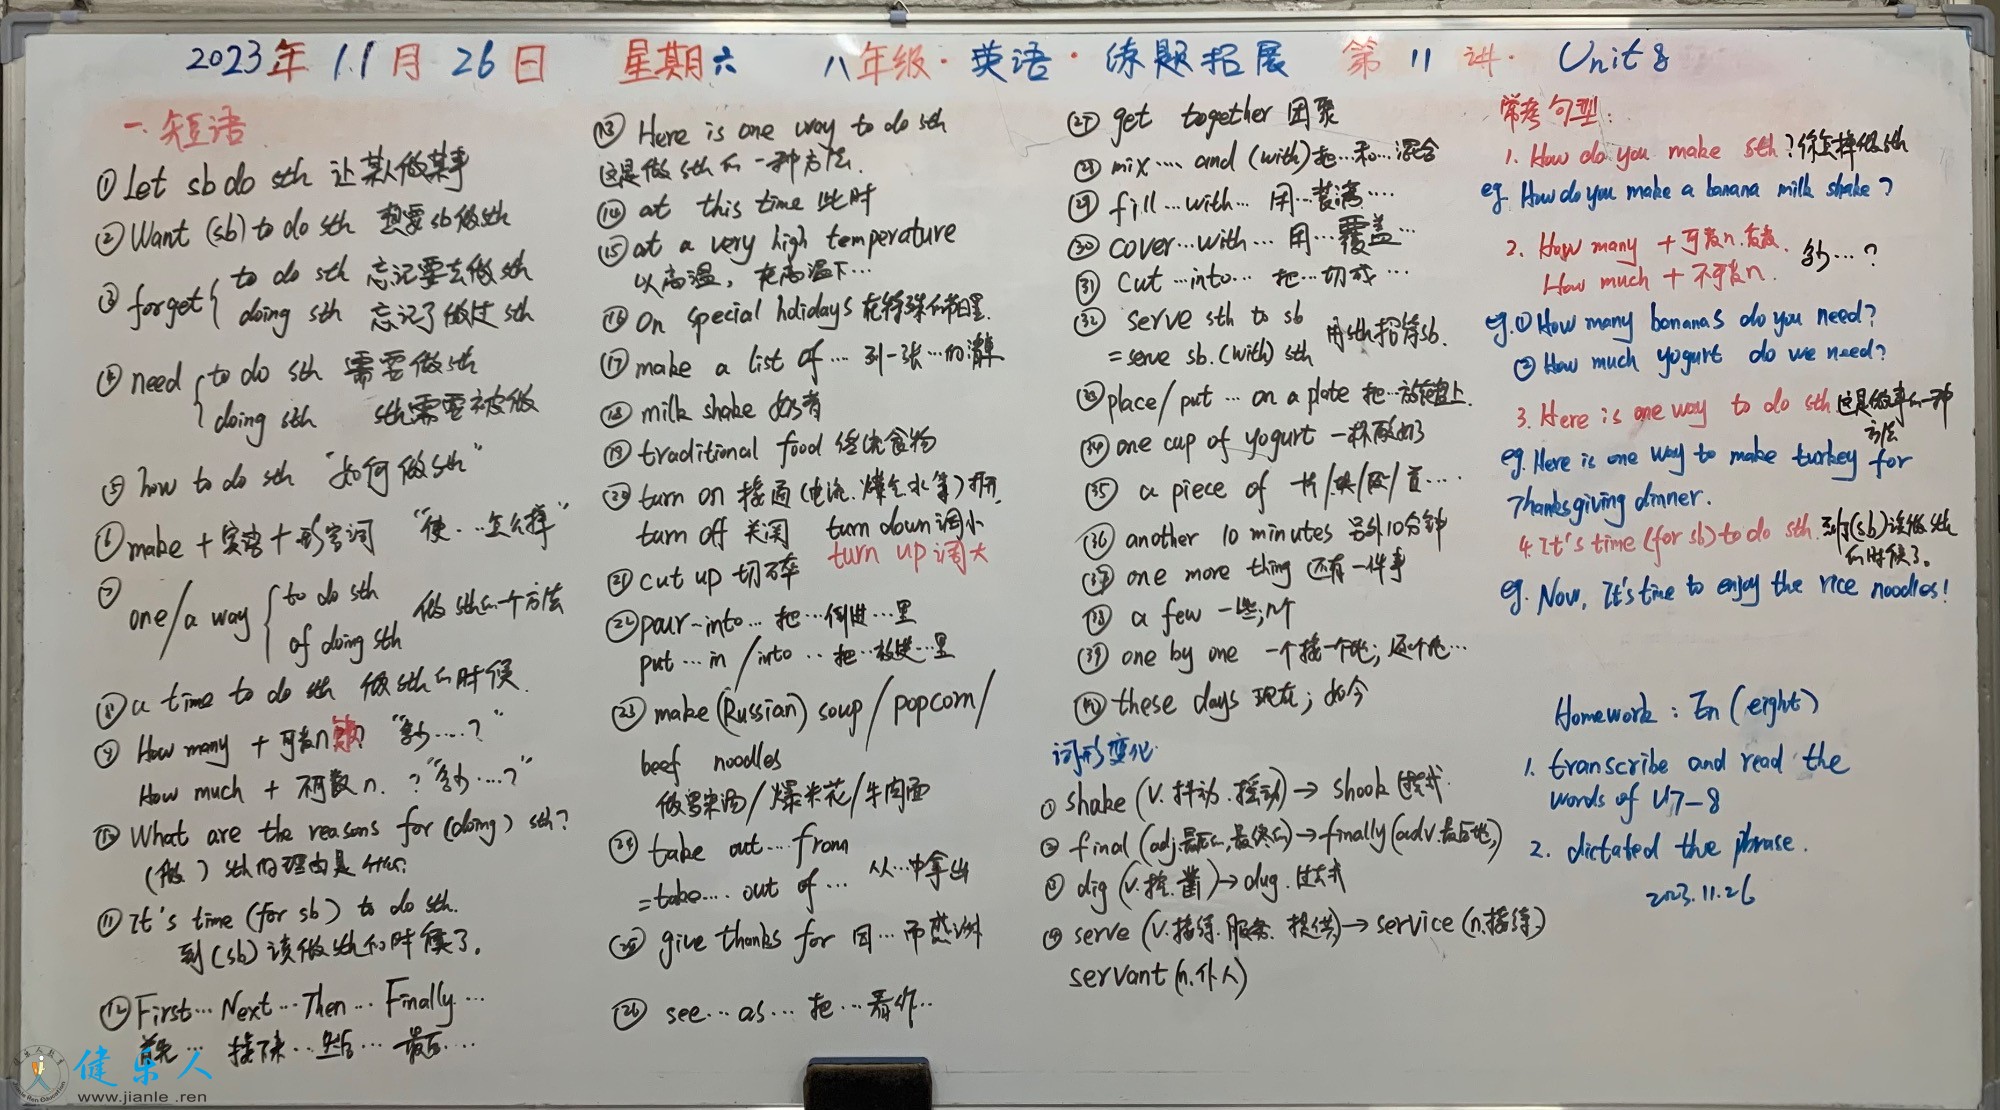 2023年 11月 26日 星期六 八年级·英语·练题拓展 第 11 讲· Unit 8
一. 短语
① Let sb do sth 让某人做某事
② Want (sb) to do sth 想要sb做sth
③ forget { to do sth 忘记要去做sth
doing sth 忘记了做过sth
④ need { to do sth 需要做sth
doing sth sth需要被做
⑤ how to do sth "如何做sth"
⑥ make + 宾语 + 形容词 "使…怎么样"
⑦ one/a way { to do sth
of doing sth 做sth的一个方法
⑧ a time to do sth 做sth的时候.
⑨ How many + 可数n "多少……?"
How much + 不可数n. ? "多少……?"
⑩ What are the reasons for (doing) sth?
(做) sth的理由是什么?
⑪ It's time (for sb) to do sth.
到(sb)该做sth的时候了。
⑫ First… Next… Then… Finally…
首先… 接下来… 然后… 最后…
⑬ Here is one way to do sth
这是做sth的一种方法.
⑭ at this time 此时
⑮ at a very high temperature
以高温, 在高温下…
⑯ On special holidays 在特殊的节日里.
⑰ make a list of … 列一张…的清单
⑱ milk shake 奶昔
⑲ traditional food 传统食物
⑳ turn on 接通(电流.煤气.水等)打开.
turn off 关闭 turn down 调小
turn up 调大
㉑ cut up 切碎
㉒ pour…into… 把…倒进…里
put … in / into … 把…放进…里
㉓ make (Russian) soup / popcorn /
beef noodles
做罗宋汤/爆米花/牛肉面
㉔ take out … from
=take…. out of … 从…中拿出
㉕ give thanks for 因…而感谢
㉖ see… as… 把…看作…
㉗ get together 团聚
㉘ mix …. and (with) 把…和…混合
㉙ fill…with… 用…装满….
㉚ cover…with… 用…覆盖…
㉛ cut …into… 把…切成…
㉜ serve sth to sb
= serve sb. (with) sth 用sth招待sb.
㉝ place/put … on a plate 把…放在盘上.
㉞ one cup of yogurt 一杯酸奶
㉟ a piece of 一片/块/段/首….
㊱ another 10 minutes 另外10分钟
㊲ one more thing 还有一件事
㊳ a few 一些;几个
㊴ one by one 一个接一个地; 逐个地…
㊵ these days 现在; 如今
词形变化
① shake (v. 抖动.摇动) → shook 过去式.
② final (adj.最后的,最终的) → finally (adv.最后地,)
③ dig (v.挖.凿) → dug. 过去式
④ serve (v.接待.服务.提供) → service (n.接待.)
servant (n.仆人)
常考句型:
1. How do you make sth? 你怎样做sth
eg. How do you make a banana milk shake?
2. How many + 可数n.复数.
How much + 不可数n. 多少…?
eg. ① How many bananas do you need?
② How much yogurt do we need?
3. Here is one way to do sth 这是做事的一种
方法
eg. Here is one way to make turkey for
Thanksgiving dinner.
4. It's time (for sb) to do sth. 到了(sb)该做sth
的时候了.
eg. Now, It's time to enjoy the rice noodles!
Homework : En (eight)
1. transcribe and read the
words of U7-8
2. dictated the phrase.
2023.11.26
健乐人
www.jianle.ren